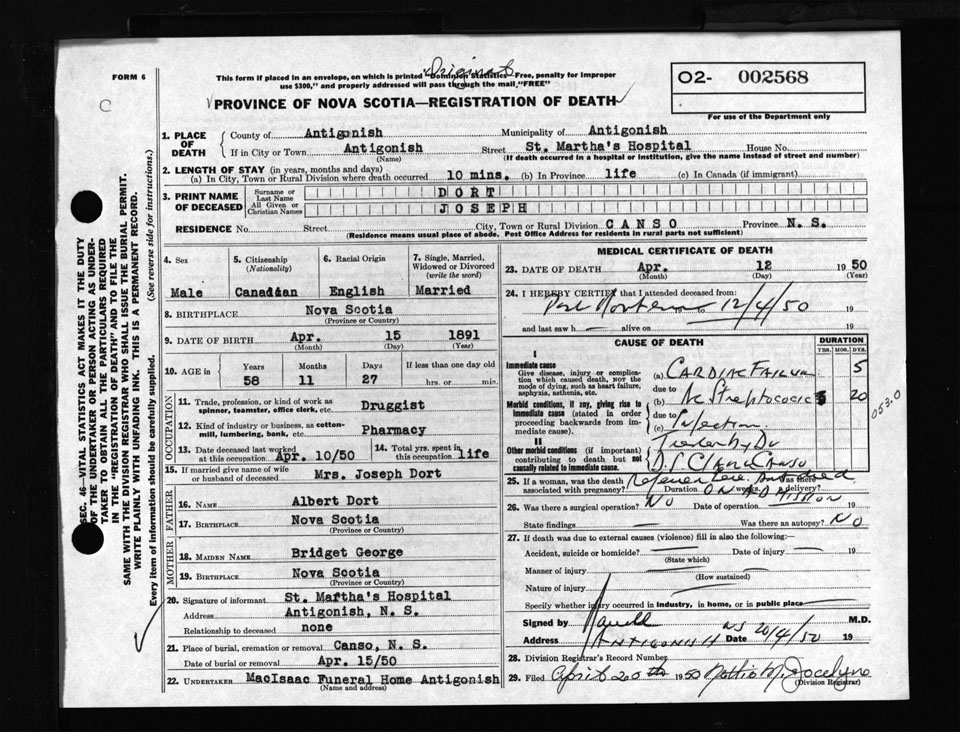 FORM 6
C
Original
This form if placed in an envelope, on which is printed "Dominion Statistics—Free, penalty for improper
use $300," and properly addressed will pass through the mail "FREE"
PROVINCE OF NOVA SCOTIA—REGISTRATION OF DEATH
O2- 002568
For use of the Department only
SEC. 46—VITAL STATISTICS ACT MAKES IT THE DUTY
OF THE UNDERTAKER OR PERSON ACTING AS UNDER-
TAKER TO OBTAIN ALL THE PARTICULARS REQUIRED
IN THE "REGISTRATION OF DEATH" AND TO FILE THE
SAME WITH THE DIVISION REGISTRAR WHO SHALL ISSUE THE BURIAL PERMIT.
WRITE PLAINLY WITH UNFADING INK. THIS IS A PERMANENT RECORD.
Every item of information should be carefully supplied. (See reverse side for instructions.)
1. PLACE OF DEATH County of Antigonish Municipality of Antigonish
If in City or Town Antigonish Street St. Martha's Hospital House No.
(Name) (If death occurred in a hospital or institution, give the name instead of street and number)
2. LENGTH OF STAY (in years, months and days)
(a) In City, Town or Rural Division where death occurred 10 mins. (b) In Province life (c) In Canada (if immigrant)
3. PRINT NAME OF DECEASED Surname or Last Name DORT
All Given or Christian Names JOSEPH
RESIDENCE No. Street City, Town or Rural Division CANSO Province N. S.
(Residence means usual place of abode. Post Office Address for residents in rural parts not sufficient)
4. Sex 5. Citizenship (Nationality) 6. Racial Origin 7. Single, Married, Widowed or Divorced (write the word)
Male Canadian English Married
8. BIRTHPLACE Nova Scotia
(Province or Country)
9. DATE OF BIRTH Apr. 15 1891
(Month) (Day) (Year)
10. AGE in Years Months Days If less than one day old
58 11 27 hrs. or min.
OCCUPATION
11. Trade, profession, or kind of work as spinner, teamster, office clerk, etc. Druggist
12. Kind of industry or business, as cotton-mill, lumbering, bank, etc. Pharmacy
13. Date deceased last worked at this occupation Apr. 10/50 14. Total yrs. spent in this occupation life
15. If married give name of wife or husband of deceased Mrs. Joseph Dort
FATHER
16. NAME Albert Dort
17. BIRTHPLACE Nova Scotia
(Province or Country)
MOTHER
18. MAIDEN NAME Bridget George
19. BIRTHPLACE Nova Scotia
(Province or Country)
20. Signature of informant St. Martha's Hospital
Address Antigonish, N. S.
Relationship to deceased none
21. Place of burial, cremation or removal Canso, N. S.
Date of burial or removal Apr. 15/50
22. UNDERTAKER MacIsaac Funeral Home Antigonish
(Name and address)
MEDICAL CERTIFICATE OF DEATH
23. DATE OF DEATH Apr. 12 1950
(Month) (Day) (Year)
24. I HEREBY CERTIFY that I attended deceased from:
12/4/50 19
and last saw h alive on 19
CAUSE OF DEATH
DURATION
YRS. MOS. DYS.
I
Immediate cause
Give disease, injury or complication which caused death, NOT the mode of dying, such as heart failure, asphyxia, asthenia, etc.
(a) CARDIAC FAILURE 5
due to
Morbid conditions, if any, giving rise to immediate cause (stated in order proceeding backwards from immediate cause).
(b) Streptococcic 20
due to
(c) Infection
053.0
II
Other morbid conditions (if important) contributing to death but not causally related to immediate cause.
Treated by Dr
25. If a woman, was the death associated with pregnancy? Duration weeks Was there delivery?
ON ADMISSION
26. Was there a surgical operation? NO Date of operation 19
State findings Was there an autopsy? NO
27. If death was due to external causes (violence) fill in also the following:—
Accident, suicide or homicide? Date of injury 19
(State which)
Manner of injury
(How sustained)
Nature of injury
Specify whether injury occurred in industry, in home, or in public place
Signed by M.D.
Address ANTIGONISH NS Date 20/4/50 19
28. Division Registrar's Record Number
29. Filed April 20th 1950 Jocelyne
(Division Registrar)